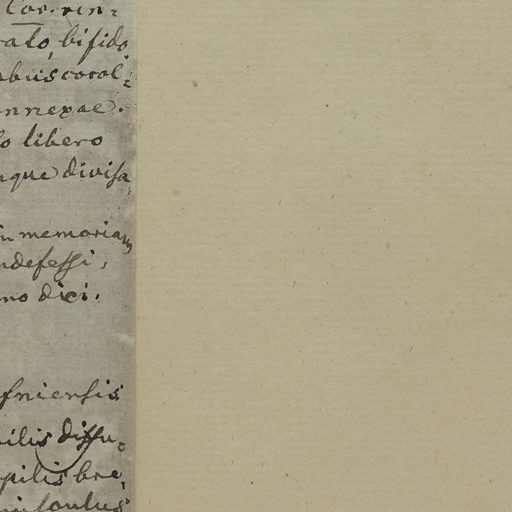 Cor. rin-
rato, bifido
abus corol-
nnexae.
lo libero
aque divisa,
in memoriam
ndefessi,
mo dixi.
fniensis
ilis diffu-
pilis bre,